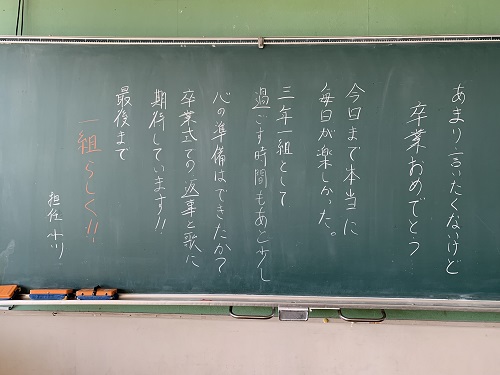 あまり言いたくないけど
卒業おめでとう
今日まで本当に
毎日が楽しかった。
三年一組として
過ごす時間もあと少し
心の準備はできたか?
卒業式での返事と歌に
期待しています!!
最後まで
一組らしく!!
担任 小川